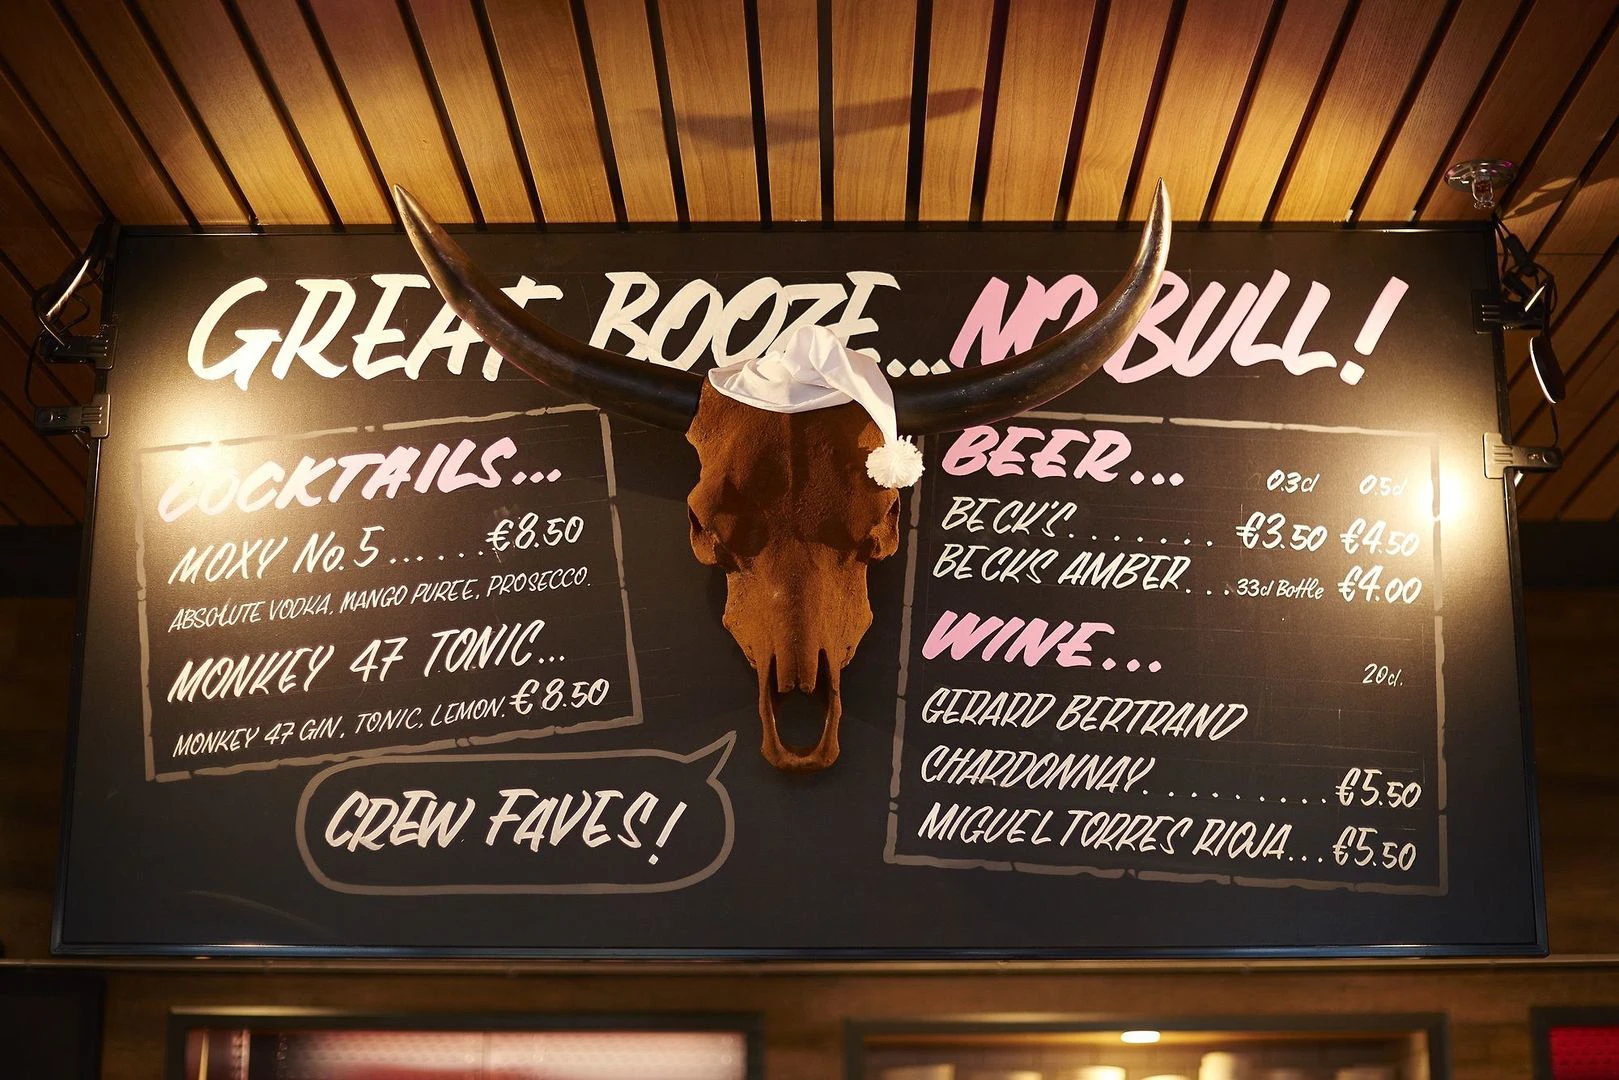 GREAT BOOZE... NO BULL!
COCKTAILS...
MOXY No. 5......€8.50
ABSOLUTE VODKA, MANGO PUREE, PROSECCO.
MONKEY 47 TONIC...
MONKEY 47 GIN, TONIC, LEMON. €8.50
CREW FAVES!
BEER...
0.3cl 0.5cl
BECK'S........ €3.50 €4.50
BECKS AMBER...33cl Bottle €4.00
WINE...
20cl.
GERARD BERTRAND
CHARDONNAY..........€5.50
MIGUEL TORRES RIOJA...€5.50